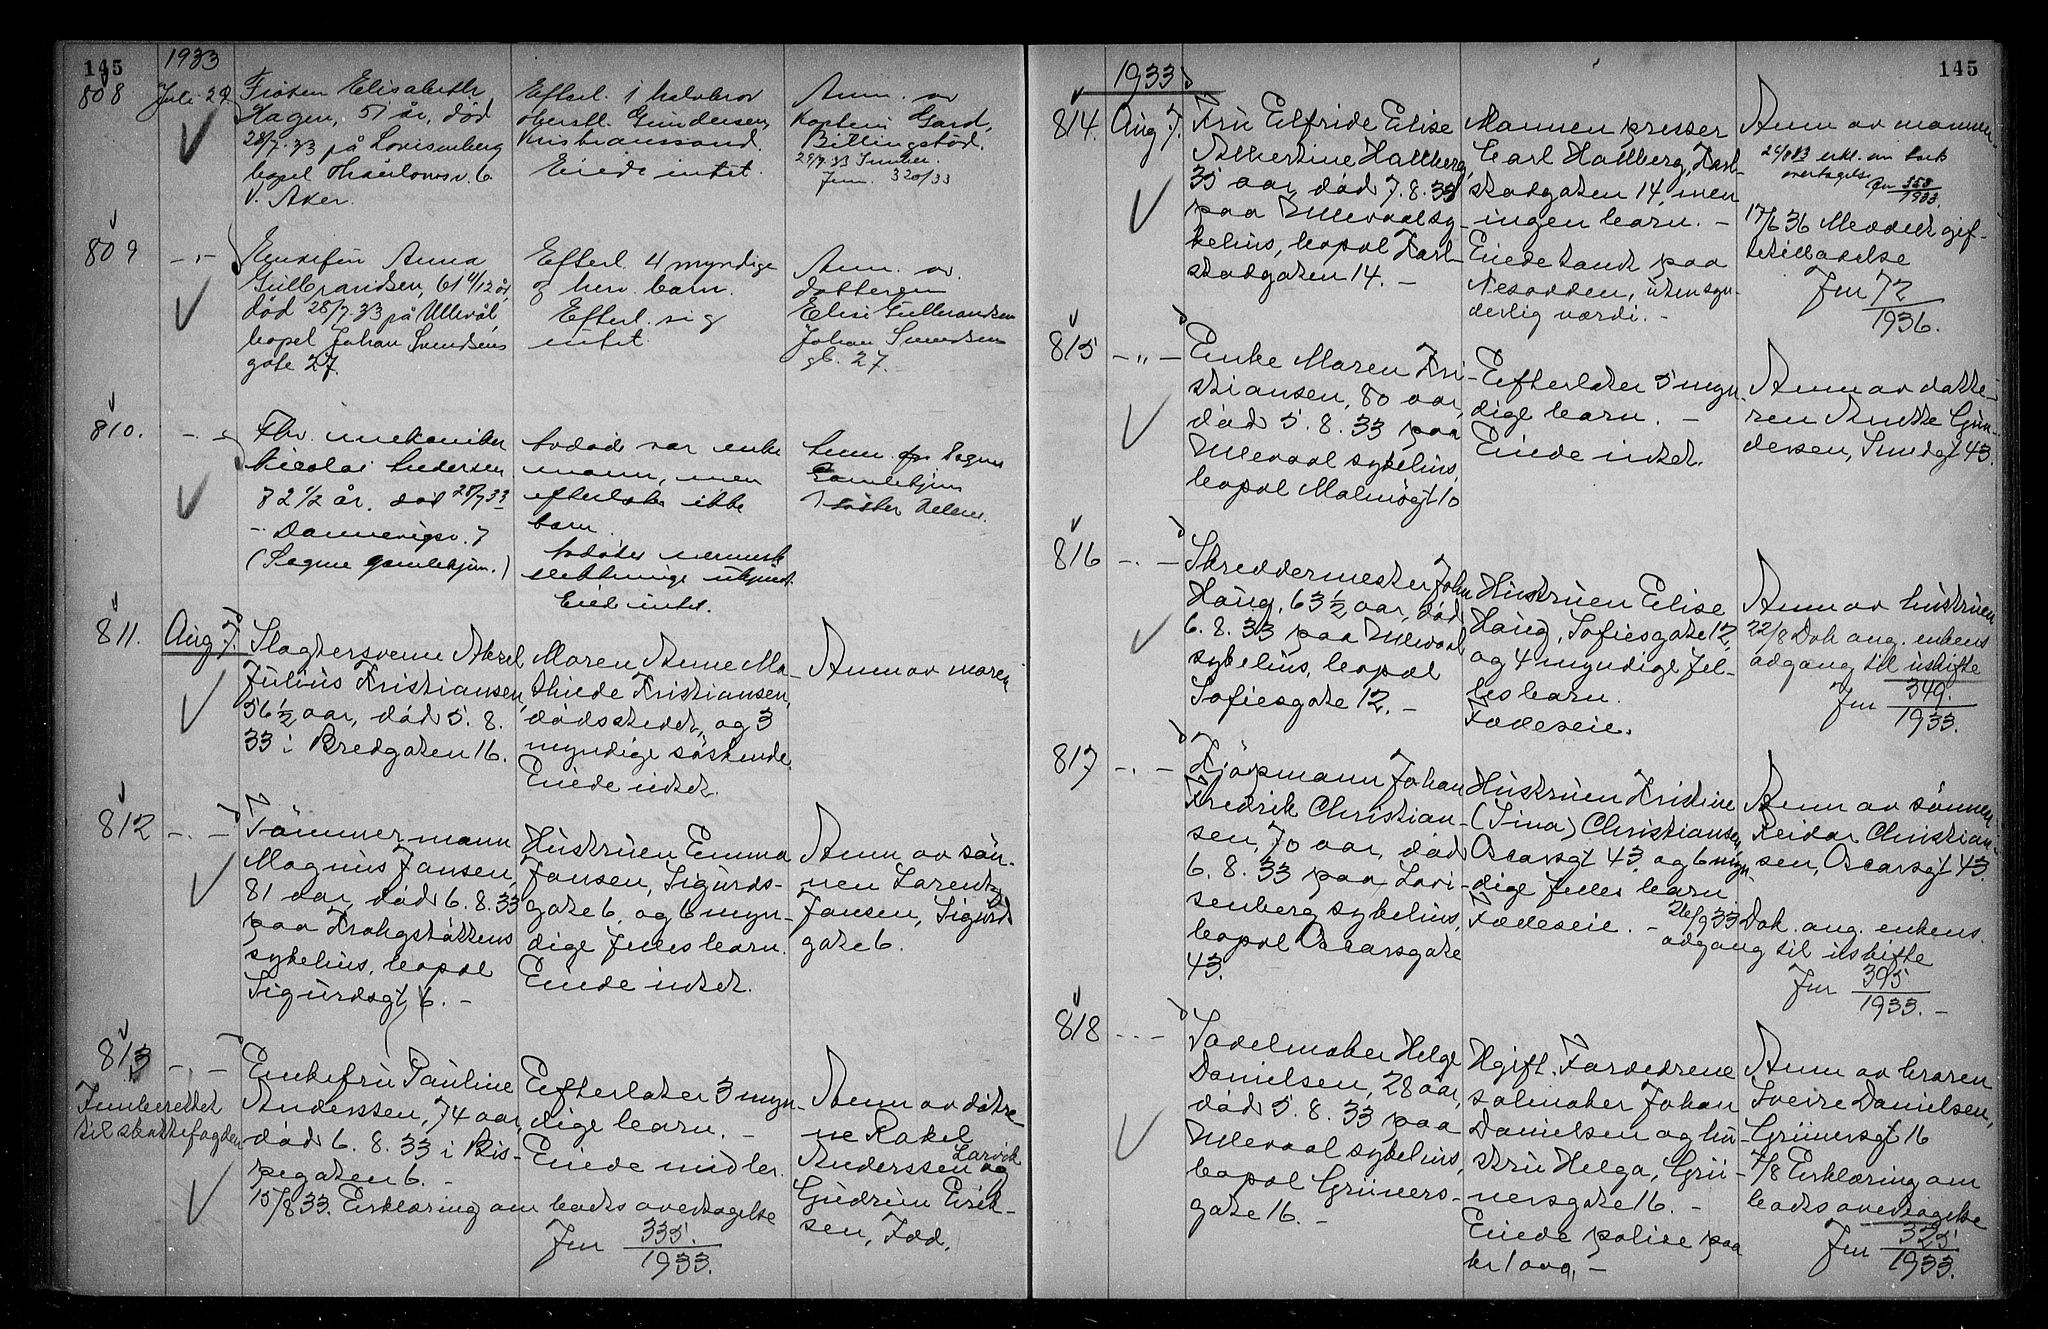 145
1933
808
Juli 29.
Frøken Elisabeth
Hagen, 51 år, død
28/7.33 på Lovisenberg
bopel
v. Aker.
Efterl. 1 halvbror
oberstl. Gundersen,
Kristianssand.
Eiede intet.
Anm. av
kaptein Gard,
Billingstad.
Jnr. 320/33
809
- " -
Enkefru Anna
Gulbrandsen, 61 4/12 år,
død 28/7.33 på Ullevål,
bopel Johan Svendsens
gate 27.
Efterl. 4 myndige
og herv. barn.
Efterl. sig
intet.
Anm. av
datteren
Elise Gulbrandsen
Johan Svendsens
gt. 27.
810.
- " -
Fhv. mekaniker
Nicolai Andersen
82 1/2 år. død 28/7 33
- Dannevigsv. 7
(Sagene gamlehjem.)
Avdøde var enke
mann, men
efterlater ikke
barn.
Avdødes nærmeste
slektninge ukjent.
Eied intet.
Anm. fra Sagene
Gamlehjem
v/ søster
811.
Aug 7.
Slagtersvenn Aksel
Julius Kristiansen,
56 1/2 aar, død 5. 8.
33 i Bredgaten 16.
Moren Anne Ma-
thiede Kristiansen,
dødsstedet, og 3
myndige søskende.
Eiede intet.
Anm av moren
812
- " -
Tømmermann
Magnus Jansen,
81 aar, død 6. 8. 33
paa Krohgstøttens
sykehus, bopæl
Sigurdsgt 6. -
Hustruen Emma
Jansen, Sigurds-
gate 6, og 6 myn-
dige fælles barn.
Eiede intet.
Anm av søn-
nen Larentz
Jansen, Sigurds
gate 6.
813
- " -
Innberettet
til skattefogden
Enkefru Pauline
Anderssen, 74 aar,
død 6. 8. 33 i Bis-
pegaten 6. -
Efterlater 3 myn-
dige barn. -
Eiede midler.
Anm av døtre-
ne Rakel
Anderssen Larvik og
Gudrun Erik-
sen, Fod.
15/8 33. Erklæring om boets overtagelse
Jnr 335.
1933.
145
1933
814.
Aug 7.
Fru Elfride Elise
Albertine Hallberg,
35 aar, død 7. 8. 33
paa Ullevaal sy-
kehus, bopæl Karl-
stadgaten 14. -
Mannen presser
Carl Hallberg, Karl-
stadgaten 14, men
ingen barn. -
Eiede tomt paa
Nesodden, uten syn-
derlig værdi. -
Anm av mannen
24/8 33 erkl. om boets
overtagelse Jnr 358
1933.
17/6 36 Meddelt gif-
tetilladelse
Jnr 72
1936.
815
- " -
Enke Maren Kri-
stiansen, 80 aar,
død 5. 8. 33 paa
Ullevaal sykehus,
bopæl Malmøgt 10
Efterlater 5 myn-
dige barn. -
Eiede intet.
Anm av datte-
ren Anette Gun-
dersen, Smedgt 43.
816
- " -
Skreddermester Johan
Haug, 63 1/2 aar, død
6. 8. 33 paa Ullevaal
sykehus, bopæl
Sofiesgate 12. -
Hustruen Elise
Haug, Sofiesgate 12,
og 4 myndige fel-
les barn.
Fælleseie.
Anm av hustruen
22/8 Dok ang. enkens
adgang til uskifte
Jnr 349.
1933.
817
- " -
Kjøpmann Johan
Fredrik Christian-
sen, 70 aar, død
6. 8. 33 paa Lovi-
senberg sykehus,
bopæl Oscarsgate
43.
Hustruen Kristine
(Sina) Christiansen,
Oscarsgt 43, og 6 myn-
dige felles barn.
Fælleseie. -
Anm av sønnen
Reidar Christian-
sen, Oscarsgt 43.
26/9 33 Dok. ang. enkens
adgang til uskifte
Jnr 395
1933. -
818
- " -
Salelmaker Helge
Danielsen, 28 aar,
død 5. 8. 33 paa
Ullevaal sykehus,
bopæl Grüners-
gate 16. -
Ugift. Forældrene
salmaker Johan
Danielsen og hu-
stru Helga, Grü-
nersgate 16. -
Eiede polise paa
kr 1000,-
Anm av broren
Sverre Danielsen,
Grünersgt 16
7/8 Erklæring om
boets overtagelse
Jnr 325
1933.